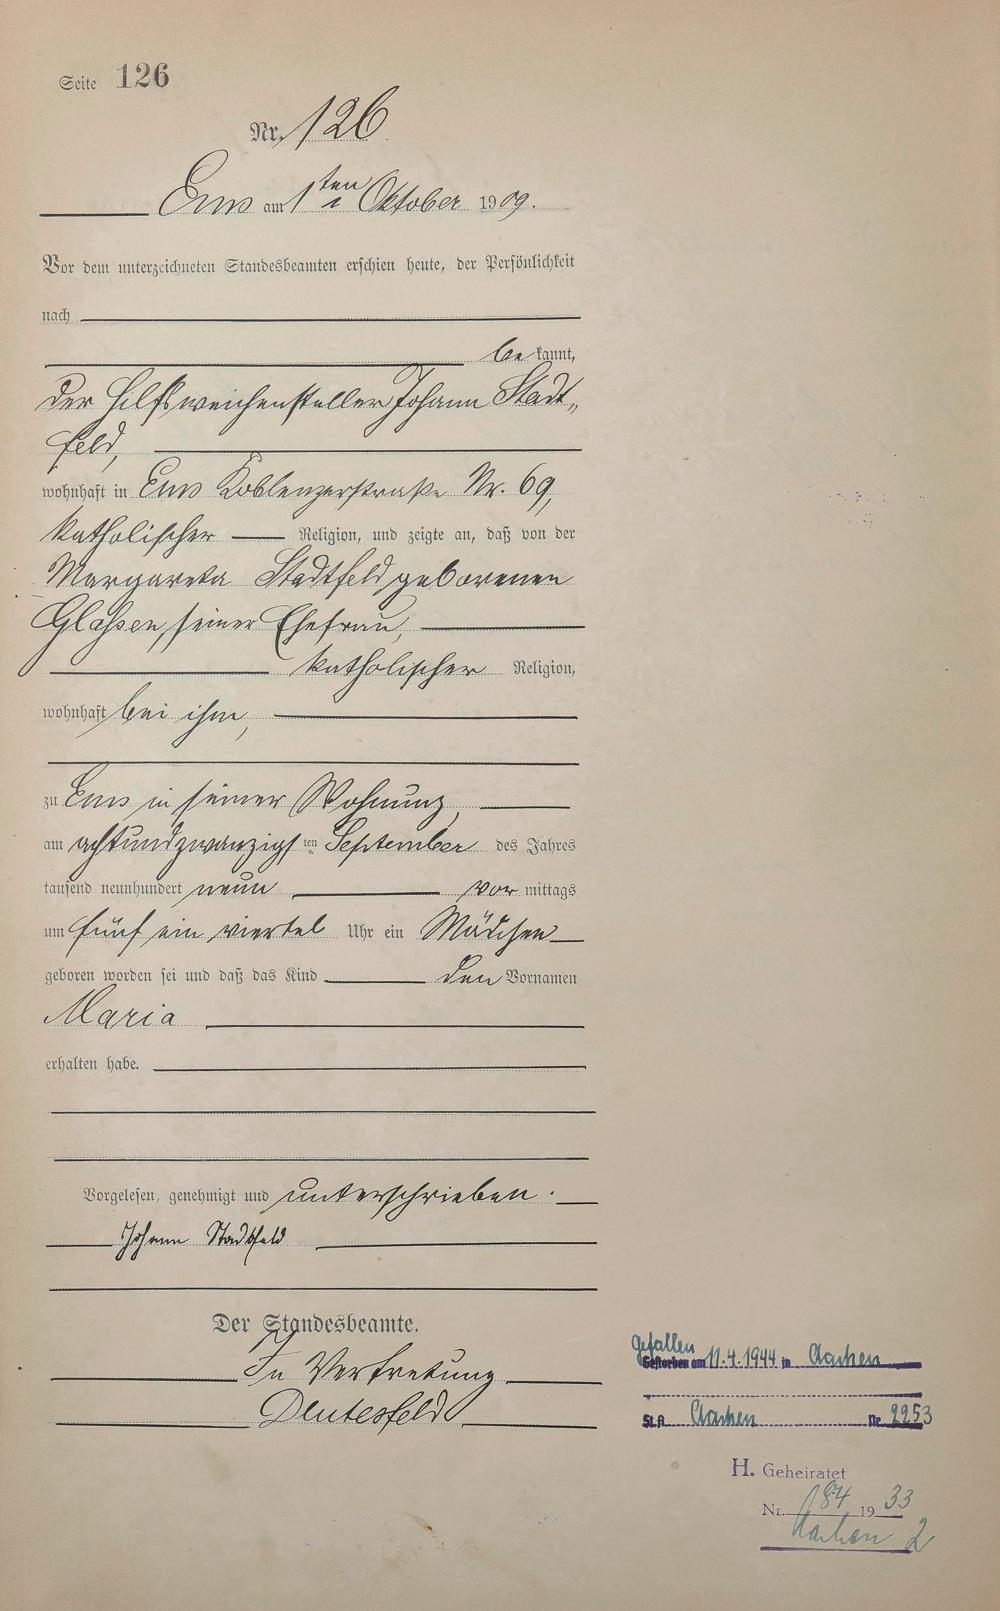 Seite 126
Nr. 126
Ems am 1ten Oktober 1909.
Vor dem unterzeichneten Standesbeamten erschien heute, der Persönlichkeit
nach
bekannt,
der Hilfsweichensteller Johann Stadt„
feld,
wohnhaft in Ems Koblenzerstraße Nr. 69,
katholischer Religion, und zeigte an, daß von der
Margareta Stadtfeld geborenen
Glassen, seiner Ehefrau,
katholischer Religion,
wohnhaft bei ihm,
zu Ems in seiner Wohnung,
am achtundzwanzigsten September des Jahres
tausend neunhundert neun vormittags
um fünf ein viertel Uhr ein Mädchen
geboren worden sei und daß das Kind den Vornamen
Maria
erhalten habe.
Vorgelesen, genehmigt und unterschrieben.
Johann Stadtfeld
Der Standesbeamte.
In Vertretung
Deutesfeld
Gefallen
Gestorben am 11.4.1944 in Aachen
St.A. Aachen Nr. 2253
H. Geheiratet
Nr. 184 1933
Aachen 2